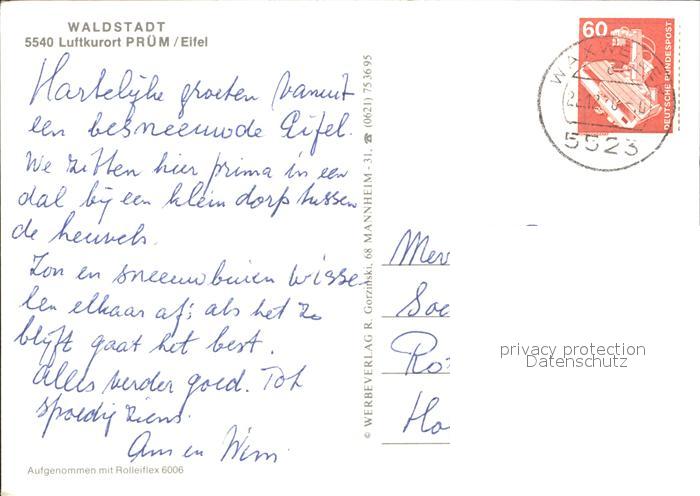 WALDSTADT
5540 Luftkurort PRÜM / Eifel
Hartelijke groeten vanuit
een besneeuwde Eifel.
We zitten hier prima in een
dal bij een klein dorp tussen
de heuvels.
Zon en sneeuwbuien wisse-
len elkaar af; als het zo
blijft gaat het best.
Alles verder goed. Tot
spoedig ziens.
en Wim
Aufgenommen mit Rolleiflex 6006
© WERBEVERLAG R. Gorzinski, 68 MANNHEIM - 31, ☎ (0621) 753695
60
DEUTSCHE BUNDESPOST
WAXWEILER
5523
Mev
Soe
Ro
Ho
privacy protection
Datenschutz